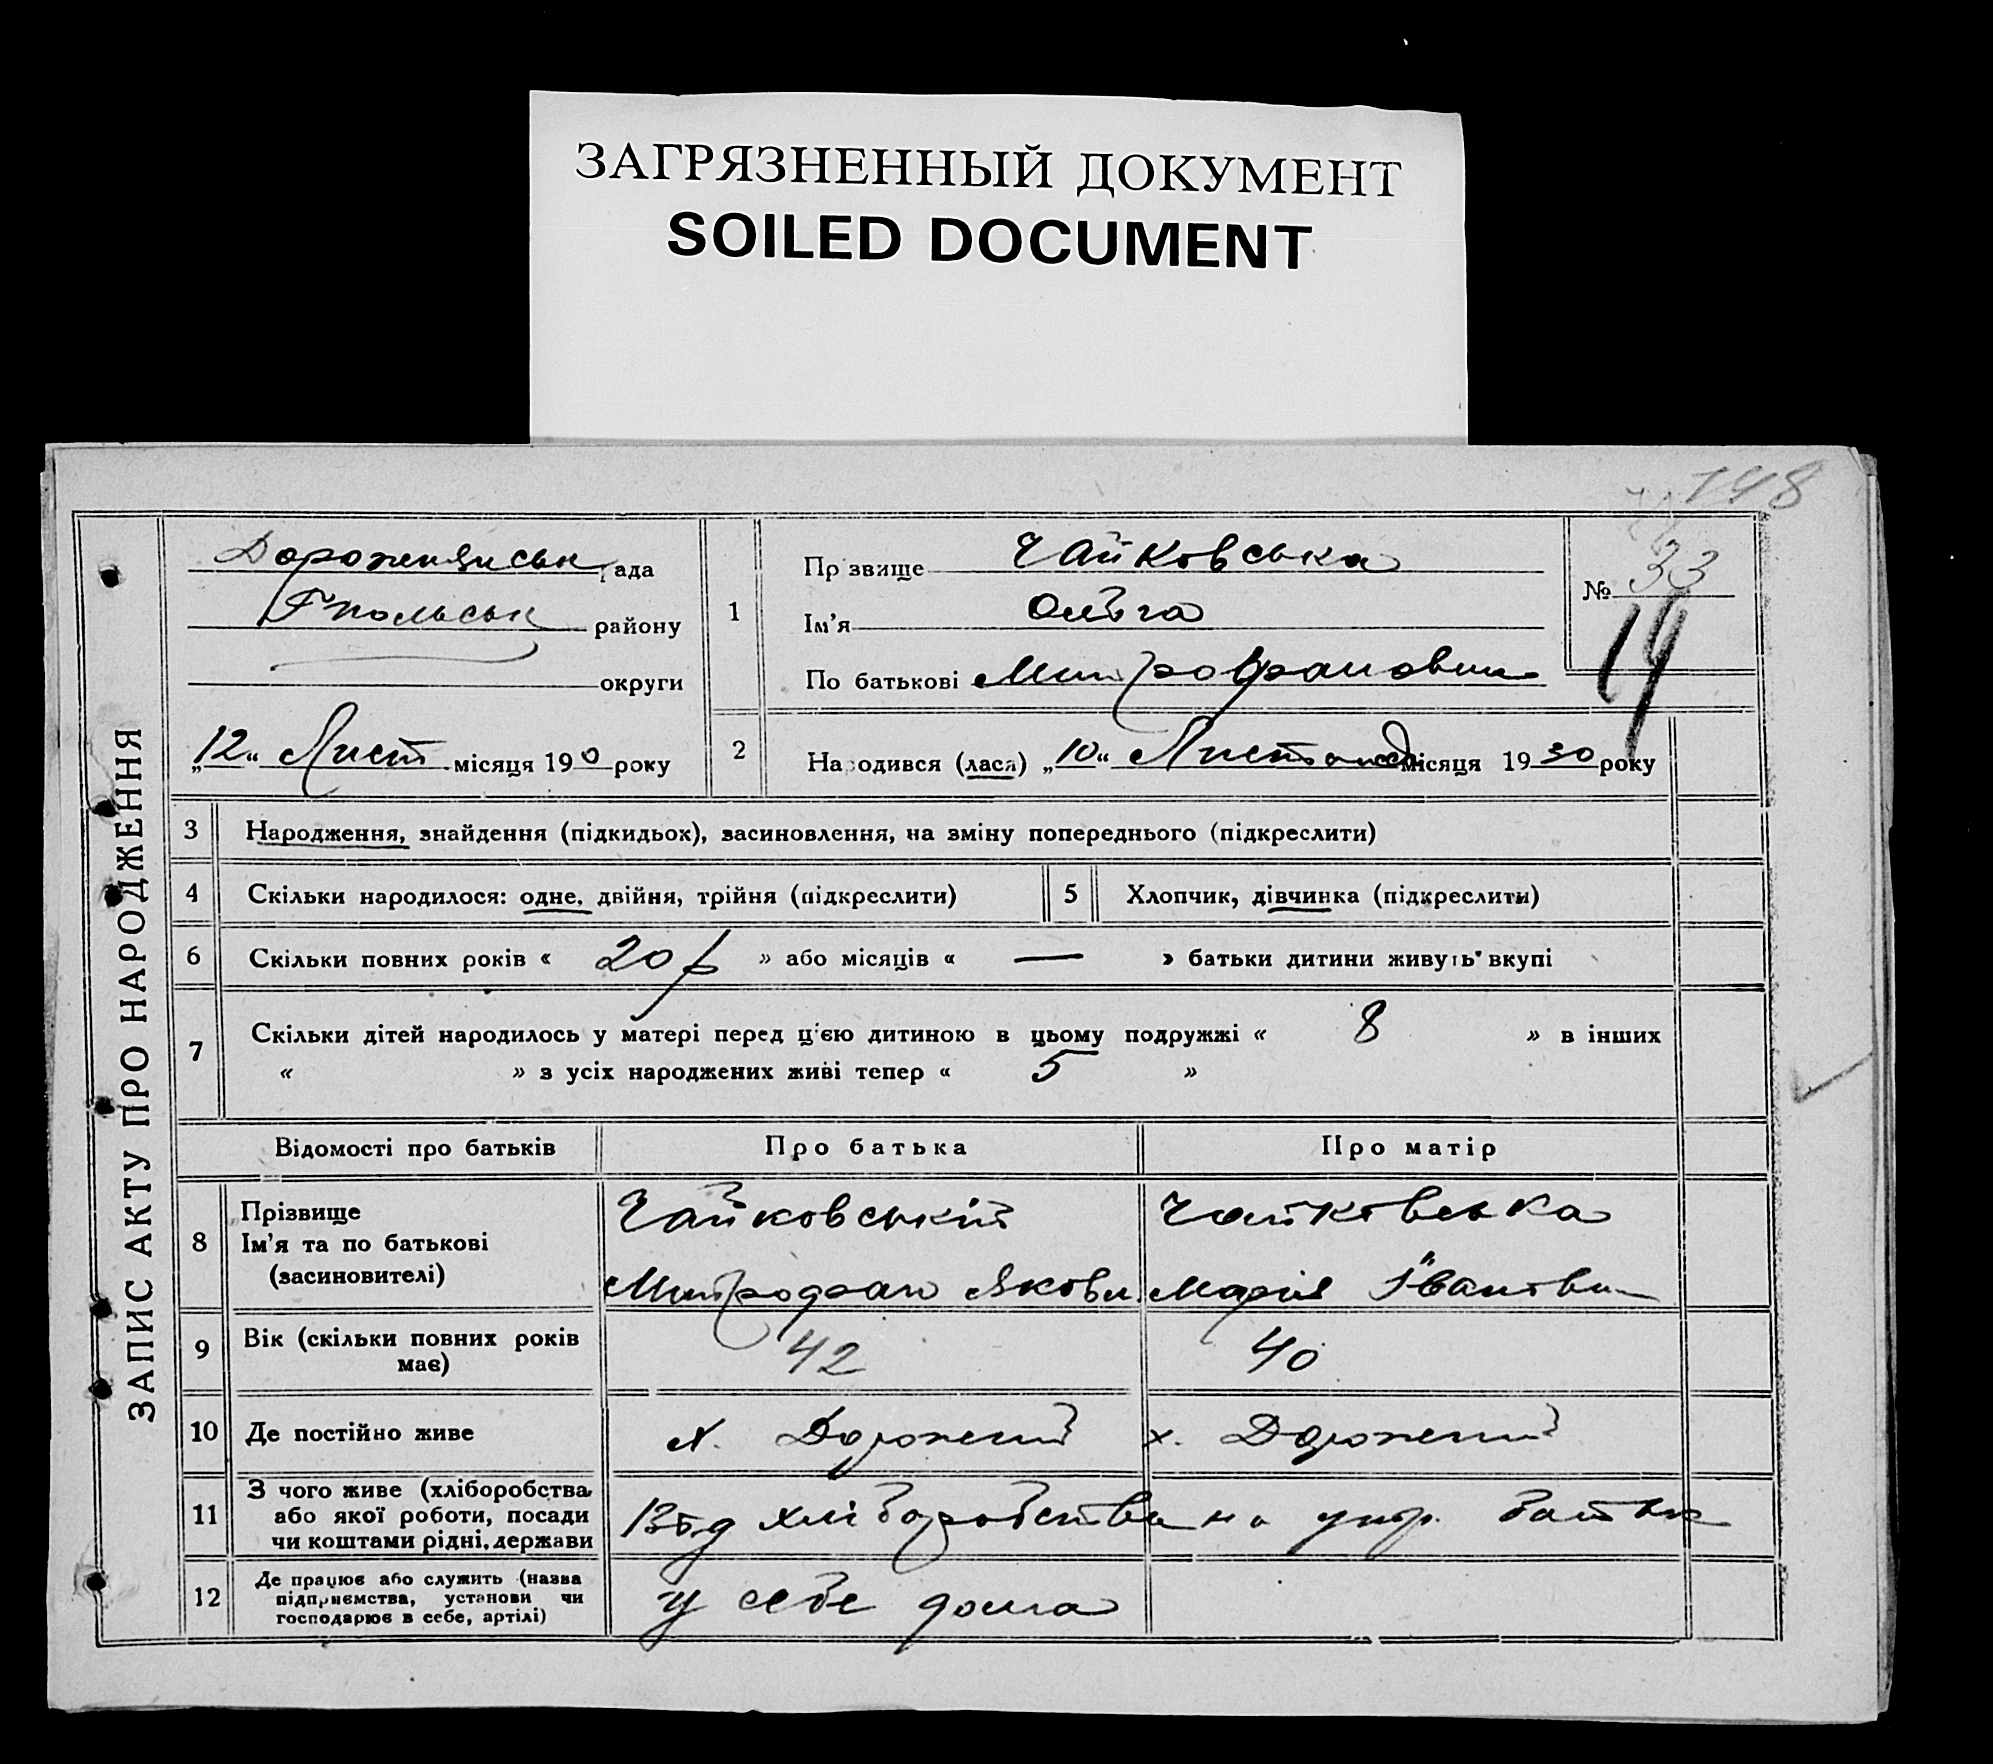 ЗАГРЯЗНЕННЫЙ ДОКУМЕНТ
SOILED DOCUMENT
148
ЗАПИС АКТУ ПРО НАРОДЖЕННЯ
Дороженянськ рада
району
округи
„12“ Лист місяця 190 року
1
Прізвище Чайковська
Ім'я Ольга
По батькові Митрофановн
№ 33
14
2 Народився (лася) „10“ Листопад місяця 1930 року
3 Народження, знайдення (підкидьок), засиновлення, на зміну попереднього (підкреслити)
4 Скільки народилося: одне, двійня, трійня (підкреслити)
5 Хлопчик, дівчинка (підкреслити)
6 Скільки повних років « 20 р » або місяців « — » батьки дитини живуть вкупі
7 Скільки дітей народилось у матері перед ц'єю дитиною в цьому подружжі « 8 » в інших
« » з усіх народжених живі тепер « 5 »
Відомості про батьків Про батька Про матір
8 Прізвище
Ім'я та по батькові
(засиновителі)
Чайковський
Митрофан Якови
Чайковська
Марія Івановн
9 Вік (скільки повних років
має)
42
40
10 Де постійно живе
х. Дорожений
х. Дорожений
11 З чого живе (хліборобства
або якої роботи, посади
чи коштами рідні, держави
Від хліборобства
на утр. батьк
12 Де працює або служить (назва
підприємства, установи чи
господарює в себе, артілі)
у себе дома